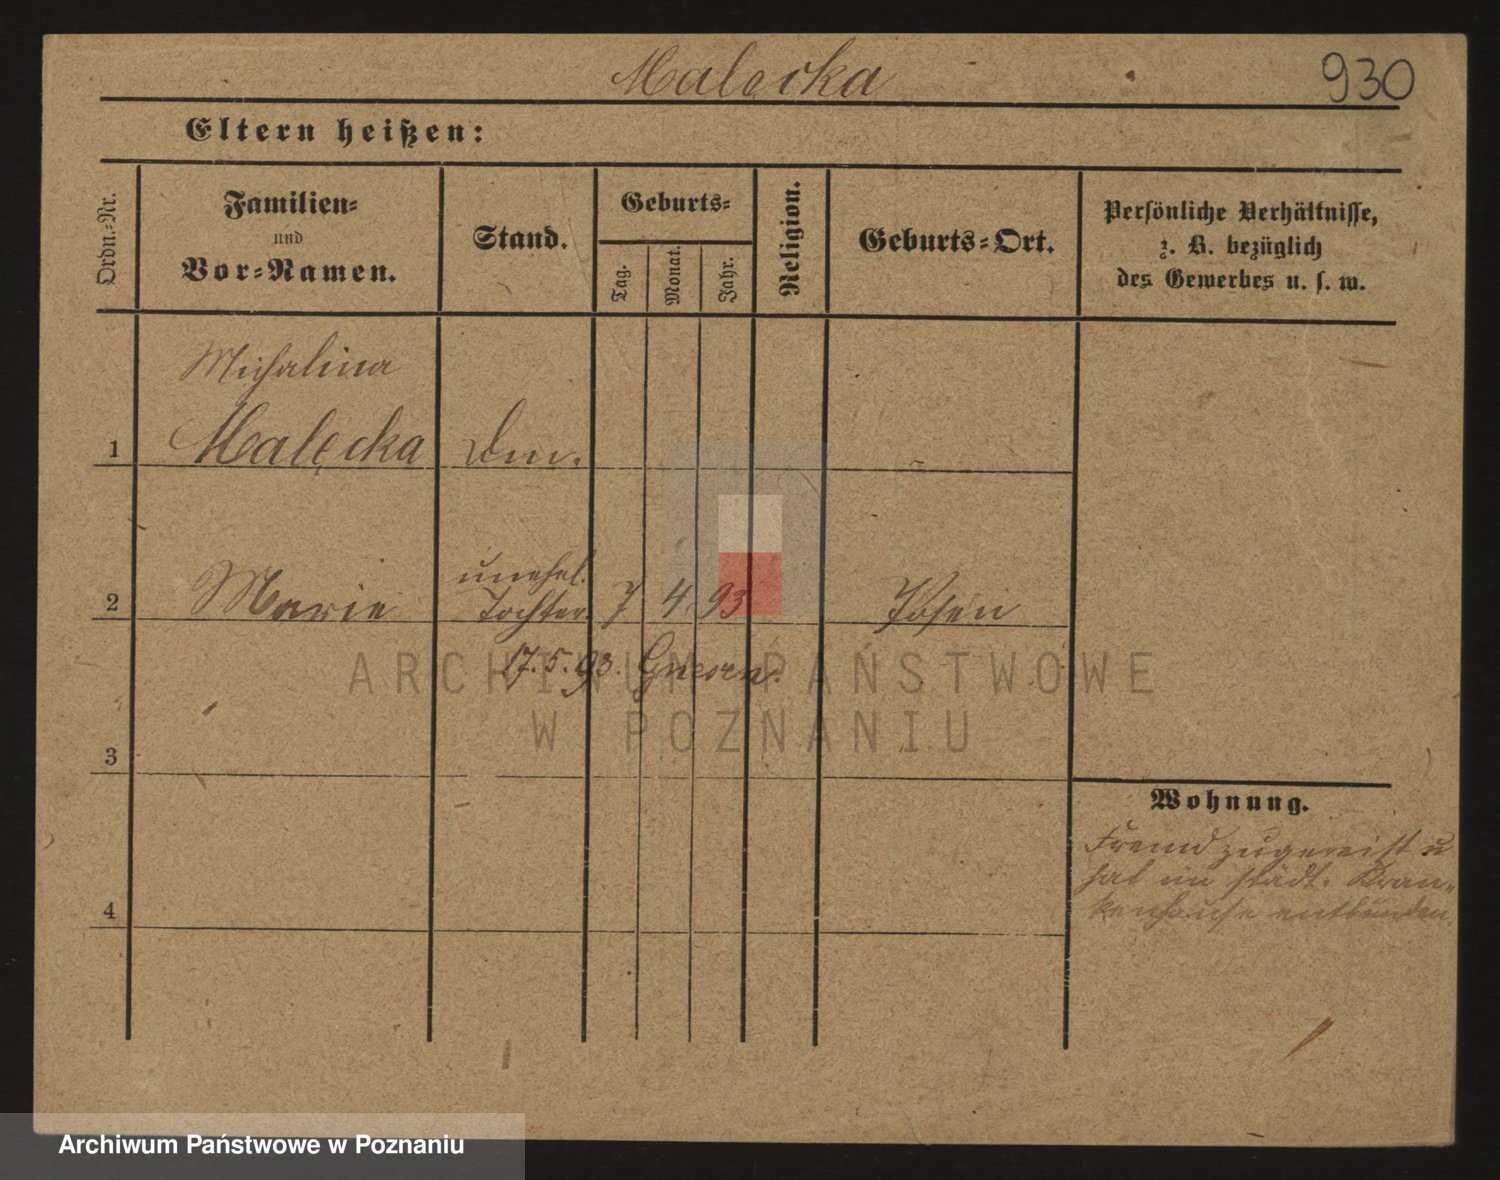 Małecka
930
Eltern heißen:
Ordn.-Nr.
Familien-
und
Vor-Namen.
Stand.
Geburts-
Tag.
Monat.
Jahr.
Religion.
Geburts-Ort.
Persönliche Verhältnisse,
z. B. bezüglich
des Gewerbes u. s. w.
Michalina
1 Malęcka
2 Marie unehel. Tochter. 7 4 93 Posen
17.5.93. Gnesen.
3
4
Wohnung.
Fremd zugereist u
hat im städt. Kran-
kenhause entbunden
ARCHIWUM PAŃSTWOWE
W POZNANIU
Archiwum Państwowe w Poznaniu